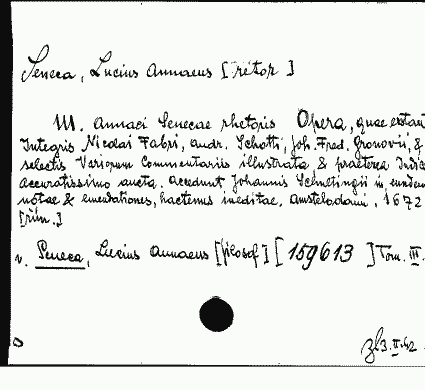 Seneca, Lucius Annaeus [rétor]
M. Annaei Senecae rhetoris Opera, quae extant
Integris Nicolai Fabri, Andr. Schotti, Joh. Fred. Gronovii, &
selectis Variorum Commentariis illustrata & praeterea Indice
accuratissimo aucta. Accedunt Johannis Schultingii in eundem
notae & emendationes, hactenus ineditae, Amstelodami, 1672
[rün.]
v. Seneca, Lucius Annaeus [filosof] [159613] Tom. III.